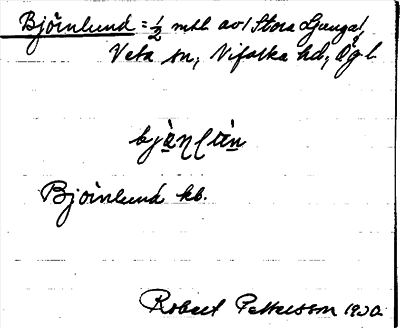 Björnlund = 1/2 mtl av Stora Ljunga,
Veta sn, Vifolka hd, Ög. l.
Björnlund kb.
Robert Pettersson 1930.